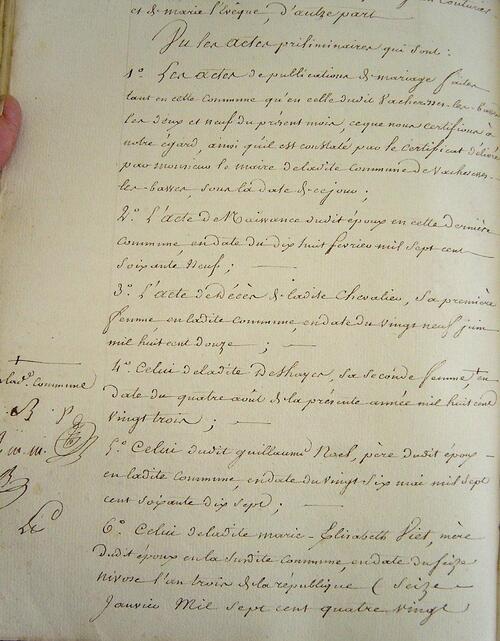 et de marie l'Evêque, d'autre part
Vu les actes préliminaires qui sont :
1º Les actes de publications de mariage faites
tant en cette commune qu'en celle dudit Vacheresses-les-basses
les deux et neuf du présent mois, ce que nous certifions à
notre égard, ainsi qu'il est constaté par le certificat délivré
par monsieur le maire de ladite commune de Vacheresses-
les-basses, sous la date de ce jour ;
2º L'acte de Naissance dudit époux en cette dernière
commune, en date du dix huit février mil sept cent
soixante neuf ; —
3º L'acte de décès de ladite Chevalier, sa première
femme en ladite commune en date du vingt neuf juin
mil huit cent douze ; —
4º Celui de ladite Deshayes, sa seconde femme, en
date du quatre août de la présente année mil huit cent
vingt trois ; —
5º Celui dudit guillaume Noel, père dudit époux -
en ladite commune, en date du vingt six mai mil sept
cent soixante dix sept ; —
6º Celui de ladite marie-Elisabeth Piet, mère
dudit époux en la susdite commune, en date du seize
nivose l'an trois de la république ( seize
Janvier Mil sept cent quatre vingt
ladte commune
B. P.
m.m.
B